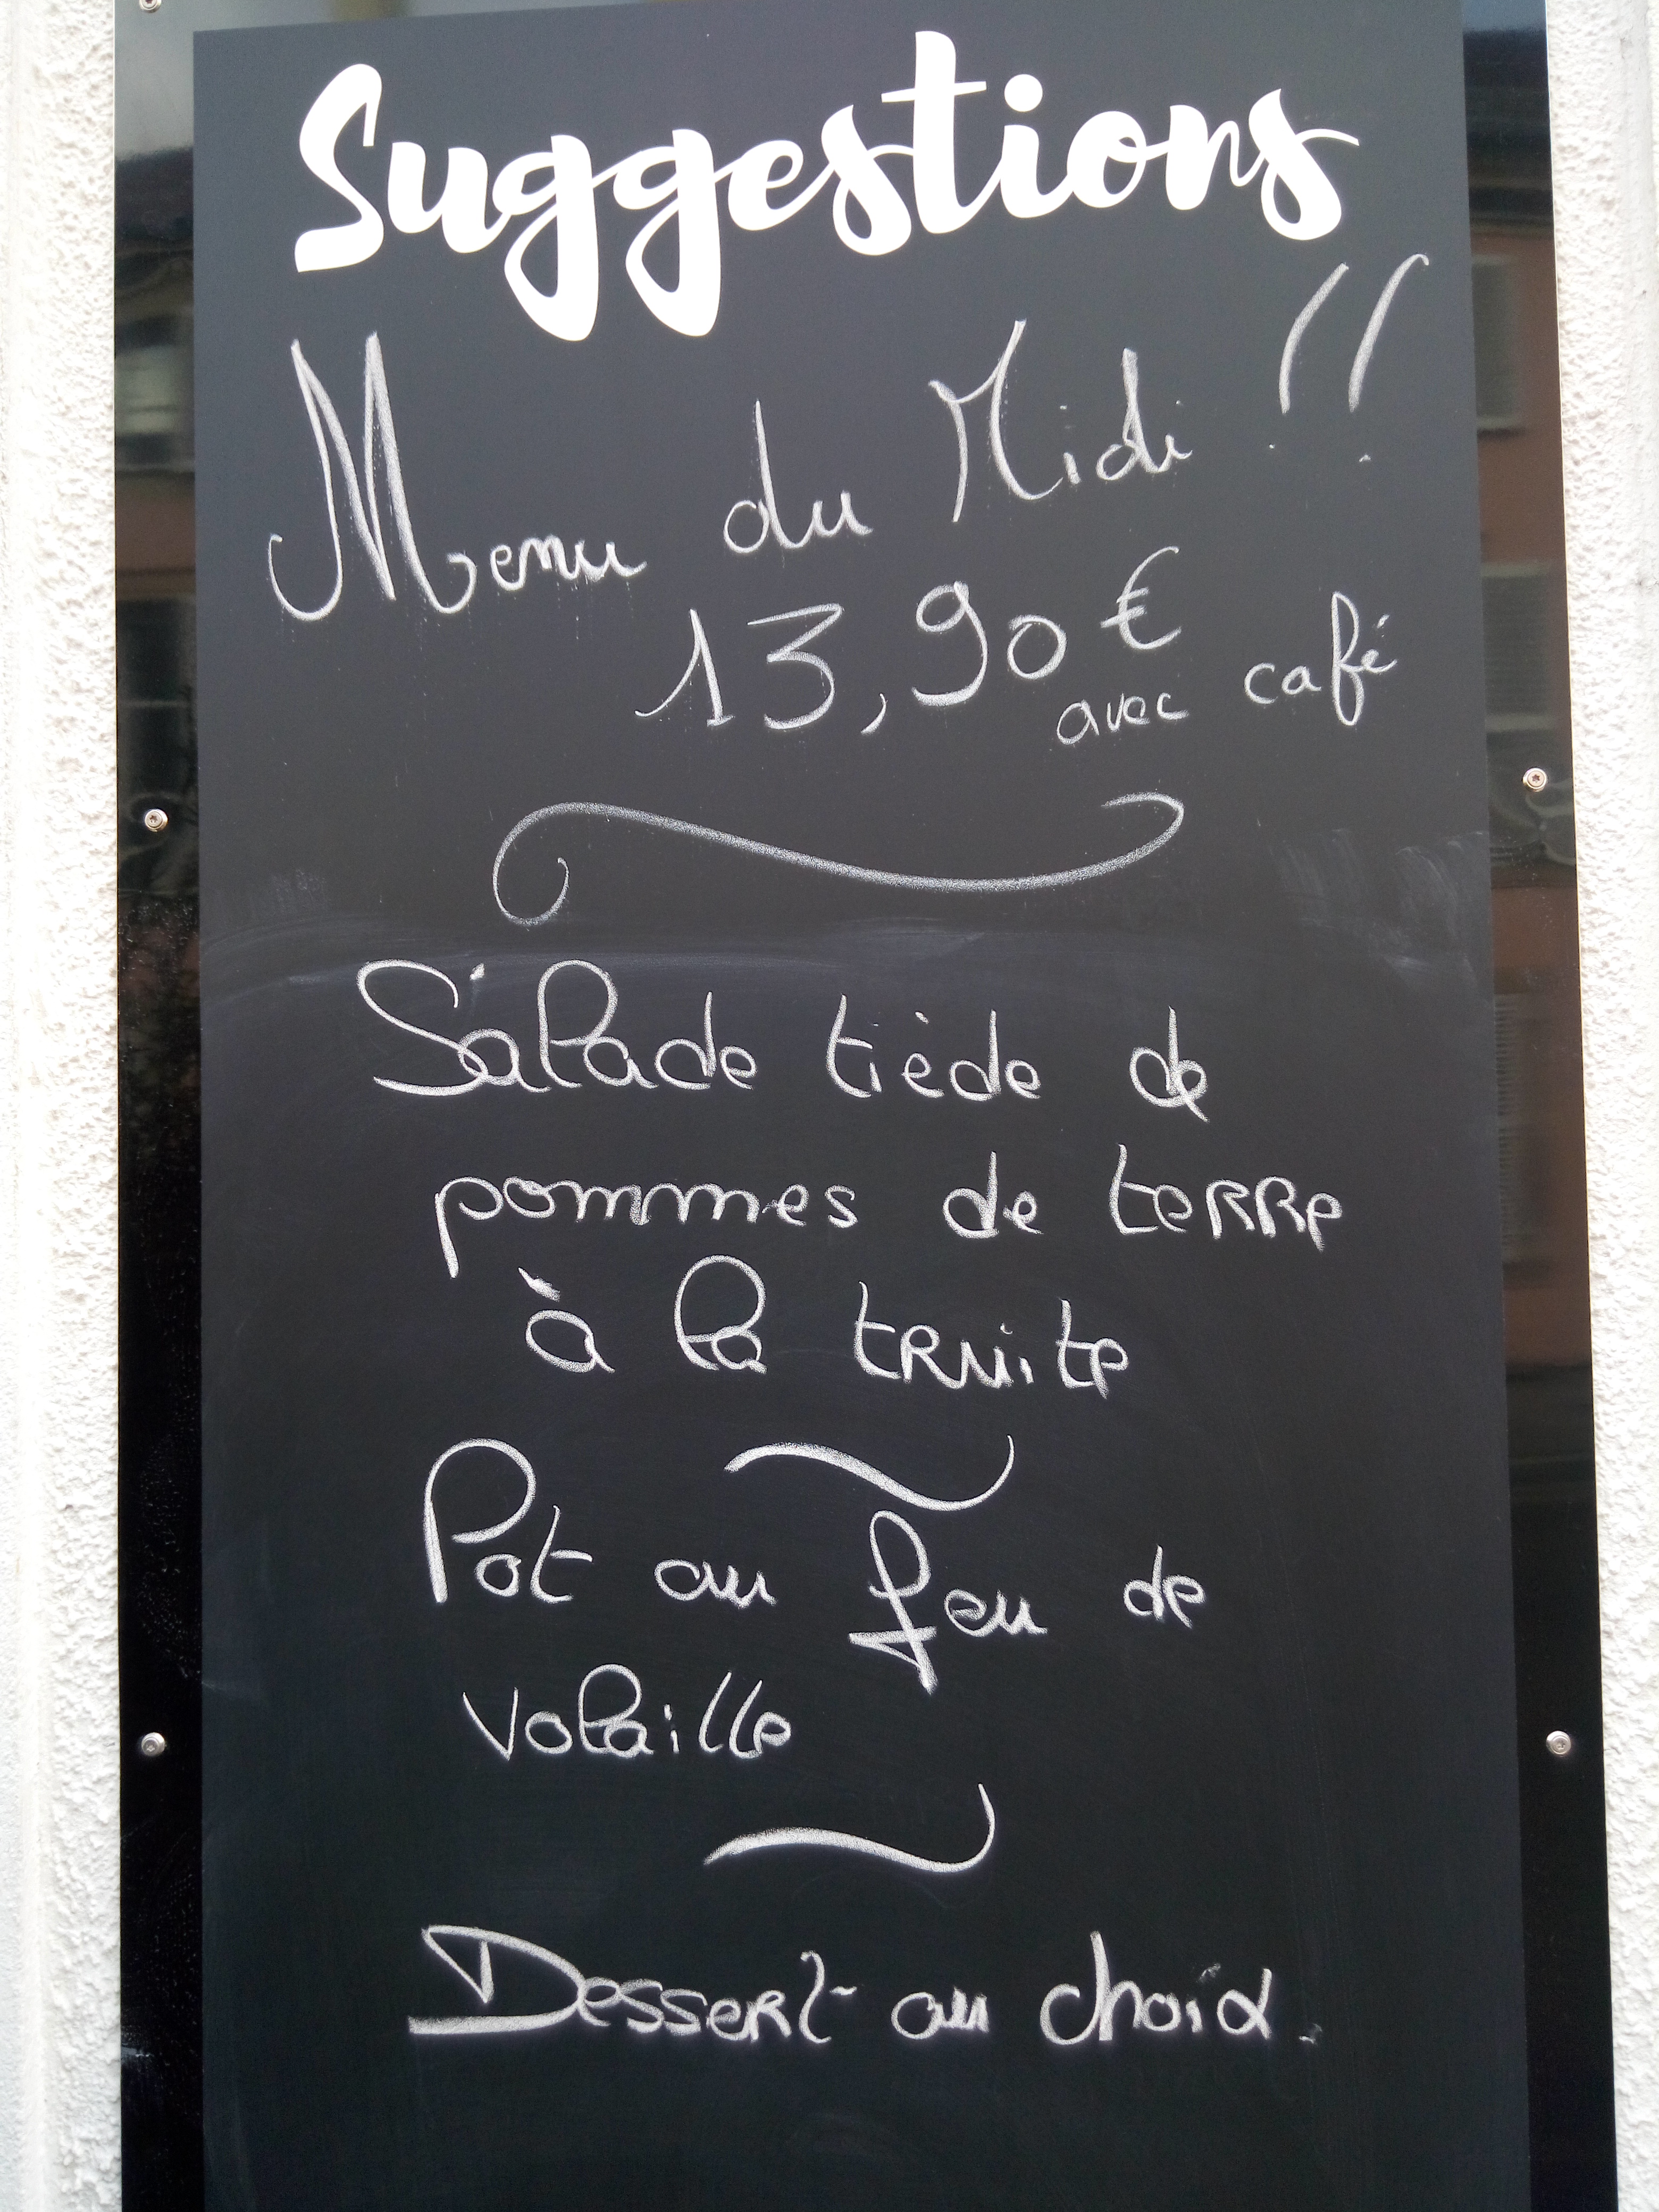 Suggestions
Menu du Midi !!
13,90 €
avec café
Salade tiède de
pommes de terre
à la truite
Pot au feu de
volaille
Dessert au choix.